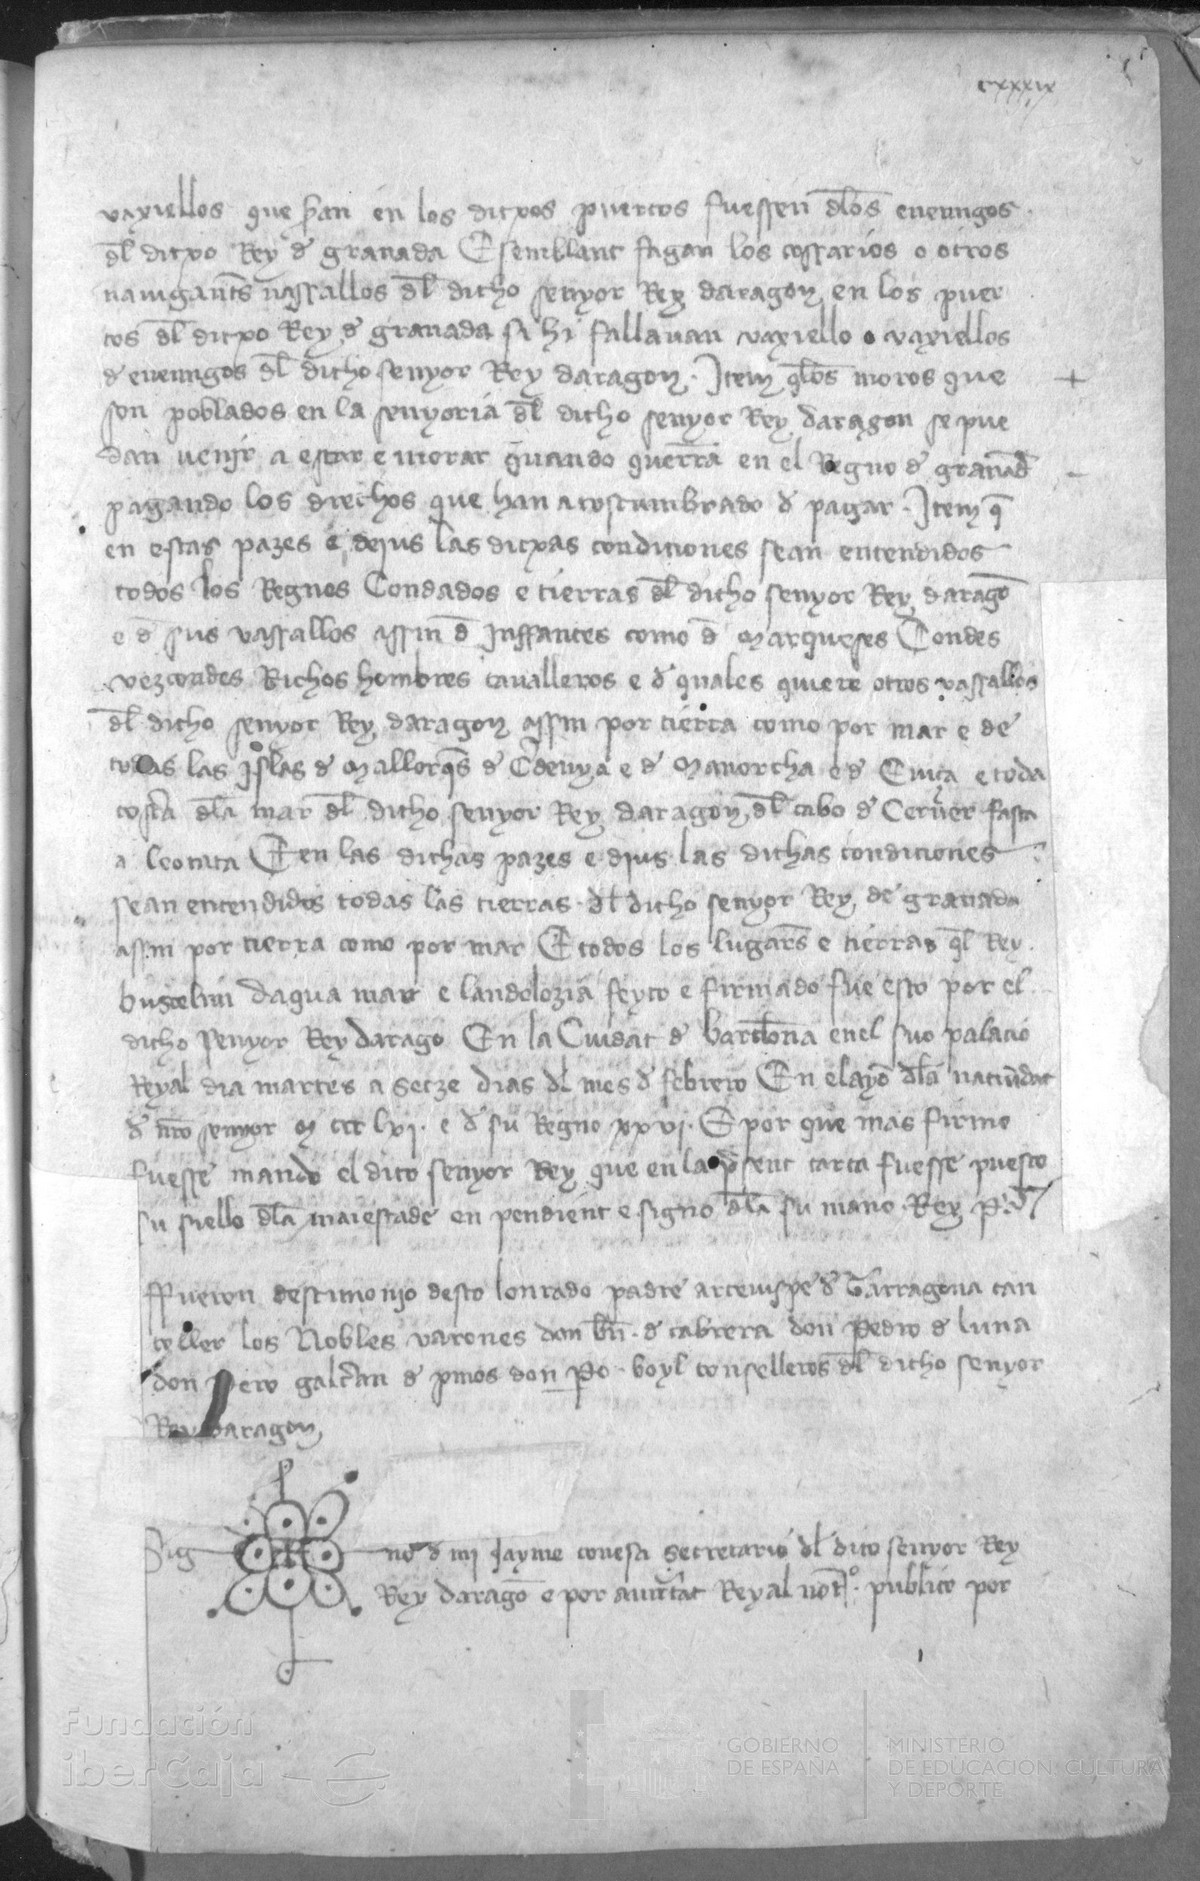 cxxxix
vaxiellos que sean en los dictxos puertos fuessen dlos enemigos
dl dictxo Rey d granada E semblant fagan los cossarios o otros
nauigants vassallos dl dicho senyor Rey daragon en los puer
tos dl dictxo Rey d granada si hi fallauan vaxiello o vaxiellos
d enemigos dl dicho senyor Rey daragon. Item qlos moros que
son poblados en la senyoria dl dicho senyor Rey daragon se pue
dan venir a estar e morar quando querra en el Regno d granad
pagando los drechos que han acostumbrado d pagar. Item q
en estas pazes e dejus las dictxas condiciones sean entendidos
todos los Regnos Condados e tierras dl dicho senyor Rey darago
e d sus vassallos assin d Inffantes como d Marqueses Condes
vezcondes Richos hombres caualleros e d quales quiere otros vassallos
dl dicho senyor Rey daragon assin por tierra como por mar e de
todas las Islas d Mallorqs d Cdenya e d Manorcha e d Euiça e toda
costa dla mar dl dicho senyor Rey daragon dl cabo d Ceruer fasta
a Leocata E en las dichas pazes e djus las dichas condiciones
sean entendidos todas las tierras dl dicho senyor Rey de granada
assin por tierra como por mar E todos los lugars e tierras ql Rey
daqua mar e landolozia feyto e firmado fue esto por el
dicho senyor Rey darago En la Ciudat d barclona en el suo palacio
Reyal dia martes a setze dias dl mes d febrero En el ayo dla natiuidat
d nro senyor M ccc lxi. e d su Regno xxvi. E por que mas firme
fuesse mando el dito senyor Rey que en la psent carta fuesse puesto
su siello dla maiestade en pendient e signo dla su mano. Rey P.
Fueron destimonjo desto lonrado padre arceuispe d Tarragona can
celler los Nobles varones don bn. d cabrera don Pedro d luna
don Pero galcran d pinos don Po. boyl conselleros dl dicho senyor
Rey daragon
Sig no d mi Jayme conesa secretario dl dito senyor Rey
Rey darago e por auctat Reyal not. publico por
Fundación
iberCaja
GOBIERNO
DE ESPAÑA
MINISTERIO
DE EDUCACIÓN, CULTURA
Y DEPORTE